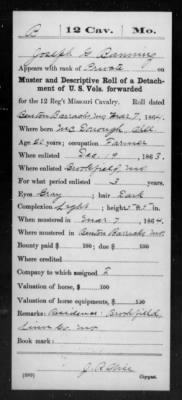 B | 12 Cav. | Mo.
Joseph G Banning
Appears with rank of Private on
Muster and Descriptive Roll of a Detach-
ment of U. S. Vols. forwarded
for the 12 Reg't Missouri Cavalry. Roll dated
Benton Barracks Mo Mar 7, 1864.
Where born McDonough, Ill.
Age 21 years; occupation Farmer
When enlisted Dec. 19, 1863.
Where enlisted Brookfield, Mo
For what period enlisted 3 years.
Eyes Gray; hair Dark
Complexion Light; height
When mustered in Mar 7, 1864.
Where mustered in Benton Barracks Mo.
Bounty paid $ 100; due $ 100
Where credited
Company to which assigned
Valuation of horse, $ 100
Valuation of horse equipments, $ 100
Remarks: Residence: Brookfield,
Linn Co. Mo
Book mark:
(339) Copyist.